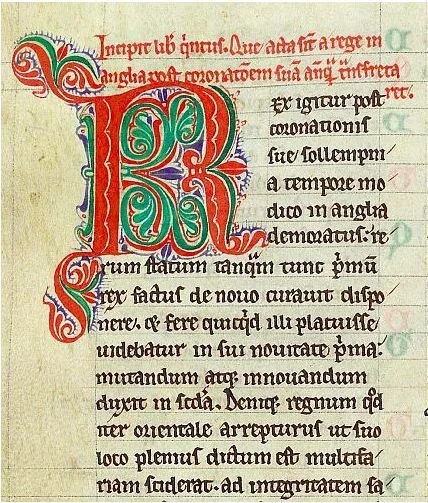 Incipit lib̃ q̃ntus. Que acta sĩt a rege in
anglia post coronatõem suã anteq̃ trãsfreta
ret.
REx igitur post
coronationis
sue sollempni
a tempore mo
dico in anglia
demoratus: re
rum statum tanq̃m tunc p̃mũ
rex factus de nouo curauit dispo
nere. &̃ fere quicq̃d illi placuisse
uidebatur in sui nouitate p̃ma:
mutandum atq; innouandum
duxit in sc̃da. Deniq; regnum q̃d
iter orientale arrepturus ut suo
loco plenius dictum est multifa
riam sciderat. ad integritatem sa